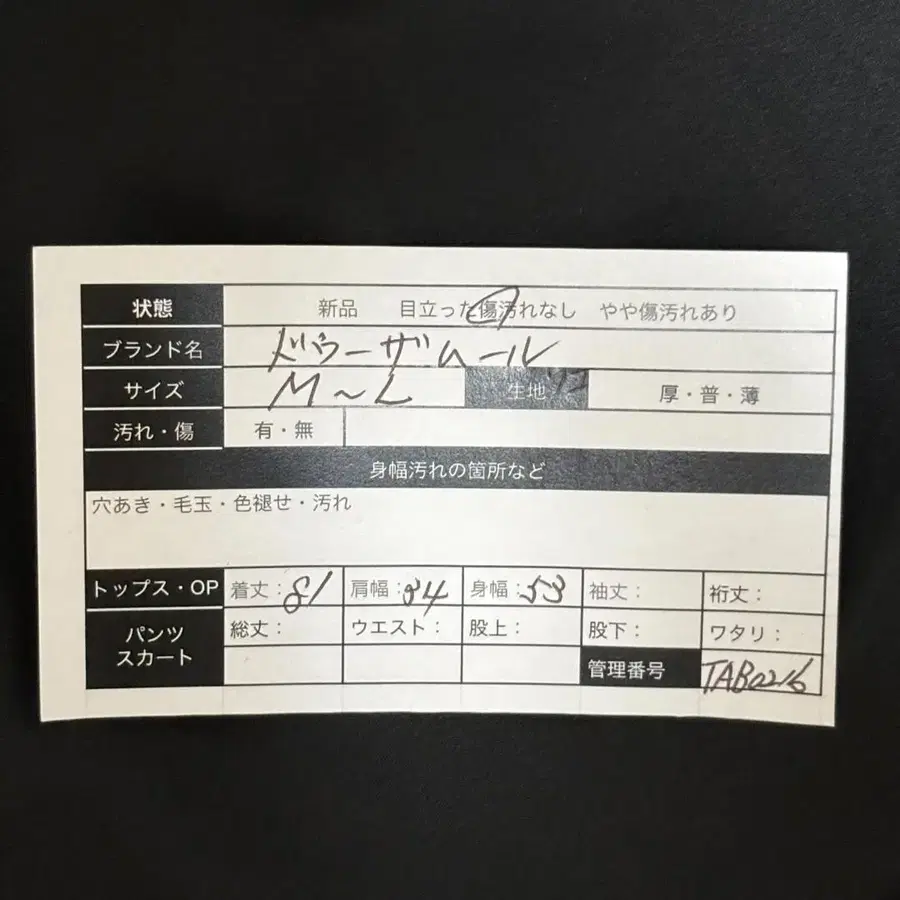 状態 新品 目立った傷汚れなし やや傷汚れあり
ブランド名 ドゥーザムール
サイズ M〜L 生地 厚・普・薄
汚れ・傷 有・無
身幅汚れの箇所など
穴あき・毛玉・色褪せ・汚れ
トップス・OP 着丈：81 肩幅：34 身幅：53 袖丈： 裄丈：
パンツ スカート 総丈： ウエスト： 股上： 股下： ワタリ：
管理番号 TAB0216